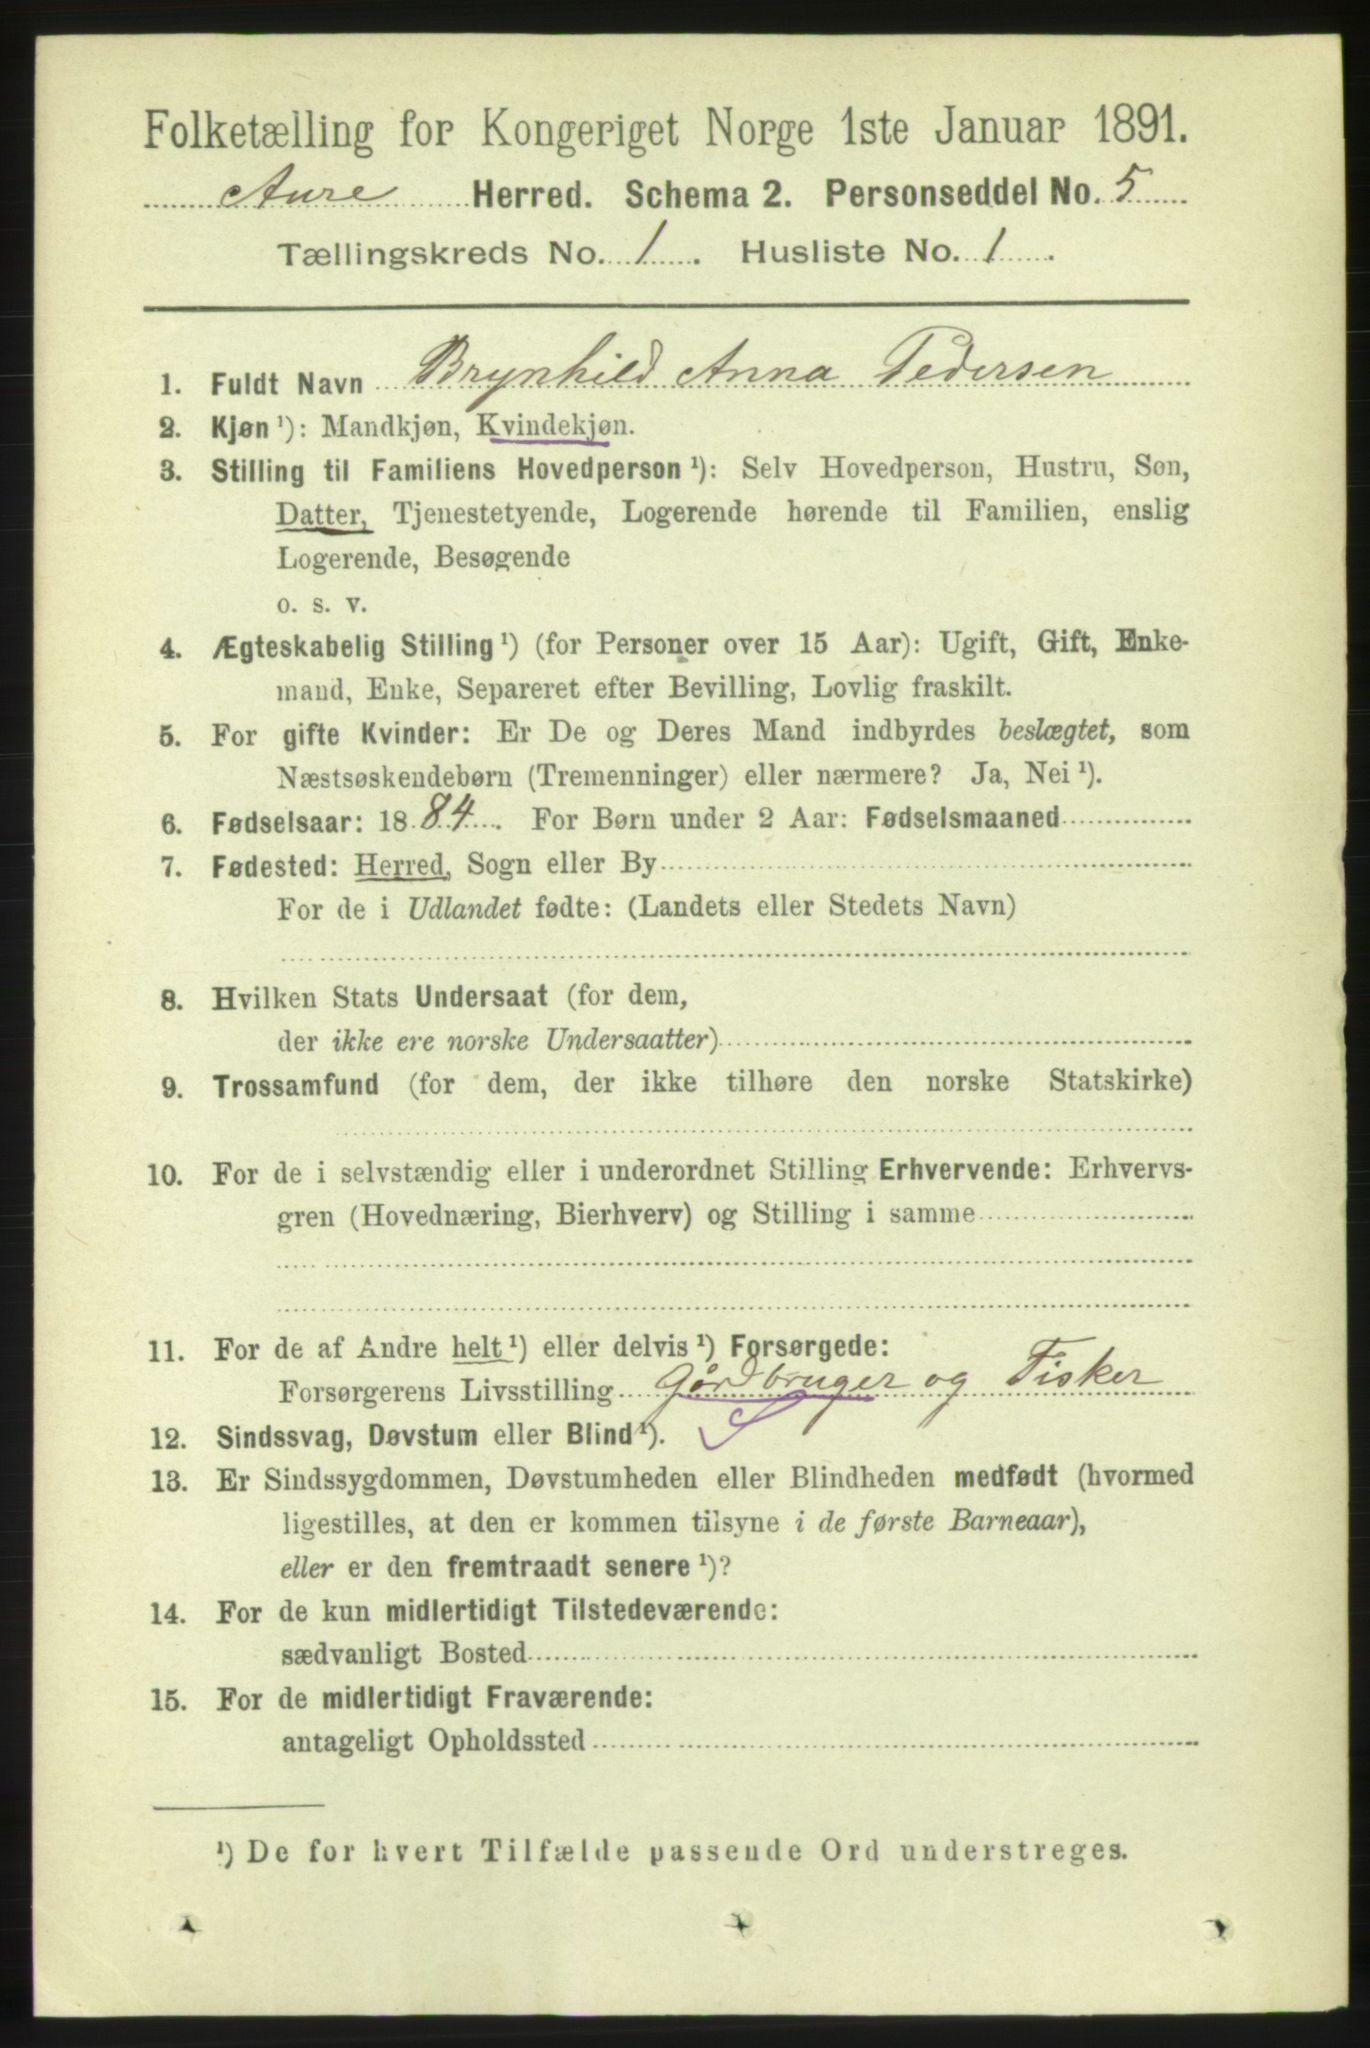 Folketælling for Kongeriget Norge 1ste Januar 1891.
Aure Herred. Schema 2. Personseddel No. 5
Tællingskreds No. 1. Husliste No. 1.
1. Fuldt Navn Brynhild Anna Pedersen
2. Kjøn ¹): Mandkjøn, Kvindekjøn.
3. Stilling til Familiens Hovedperson ¹): Selv Hovedperson, Hustru, Søn,
Datter, Tjenestetyende, Logerende hørende til Familien, enslig
Logerende, Besøgende
o. s. v.
4. Ægteskabelig Stilling ¹) (for Personer over 15 Aar): Ugift, Gift, Enke-
mand, Enke, Separeret efter Bevilling, Lovlig fraskilt.
5. For gifte Kvinder: Er De og Deres Mand indbyrdes beslægtet, som
Næstsøskendebørn (Tremenninger) eller nærmere? Ja, Nei ¹).
6. Fødselsaar: 1884. For Børn under 2 Aar: Fødselsmaaned
7. Fødested: Herred, Sogn eller By
For de i Udlandet fødte: (Landets eller Stedets Navn)
8. Hvilken Stats Undersaat (for dem,
der ikke ere norske Undersaatter)
9. Trossamfund (for dem, der ikke tilhøre den norske Statskirke)
10. For de i selvstændig eller i underordnet Stilling Erhvervende: Erhvervs-
gren (Hovednæring, Bierhverv) og Stilling i samme
11. For de af Andre helt ¹) eller delvis ¹) Forsørgede:
Forsørgerens Livsstilling Gårdbruger og Fisker
12. Sindssvag, Døvstum eller Blind ¹). S
13. Er Sindssygdommen, Døvstumheden eller Blindheden medfødt (hvormed
ligestilles, at den er kommen tilsyne i de første Barneaar),
eller er den fremtraadt senere ¹)?
14. For de kun midlertidigt Tilstedeværende:
sædvanligt Bosted
15. For de midlertidigt Fraværende:
antageligt Opholdssted
¹) De for hvert Tilfælde passende Ord understreges.